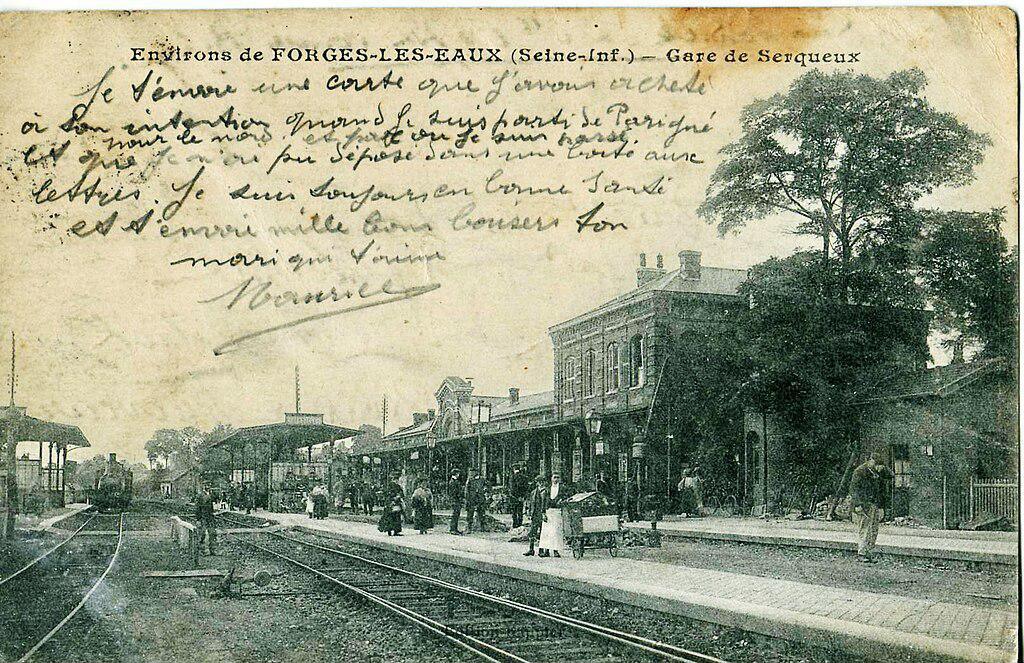 Environs de FORGES-LES-EAUX (Seine-Inf.) — Gare de Serqueux
Je t'envoie une carte que j'avais acheté
à ton intention quand je suis parti de Parigné
pour le nord et par où je suis passé
et que je n'ai pu déposé dans une boité aux
lettres. Je suis toujours en bonne santé
et t'envoie mille bons baisers ton
mari qui t'aime
Maurice